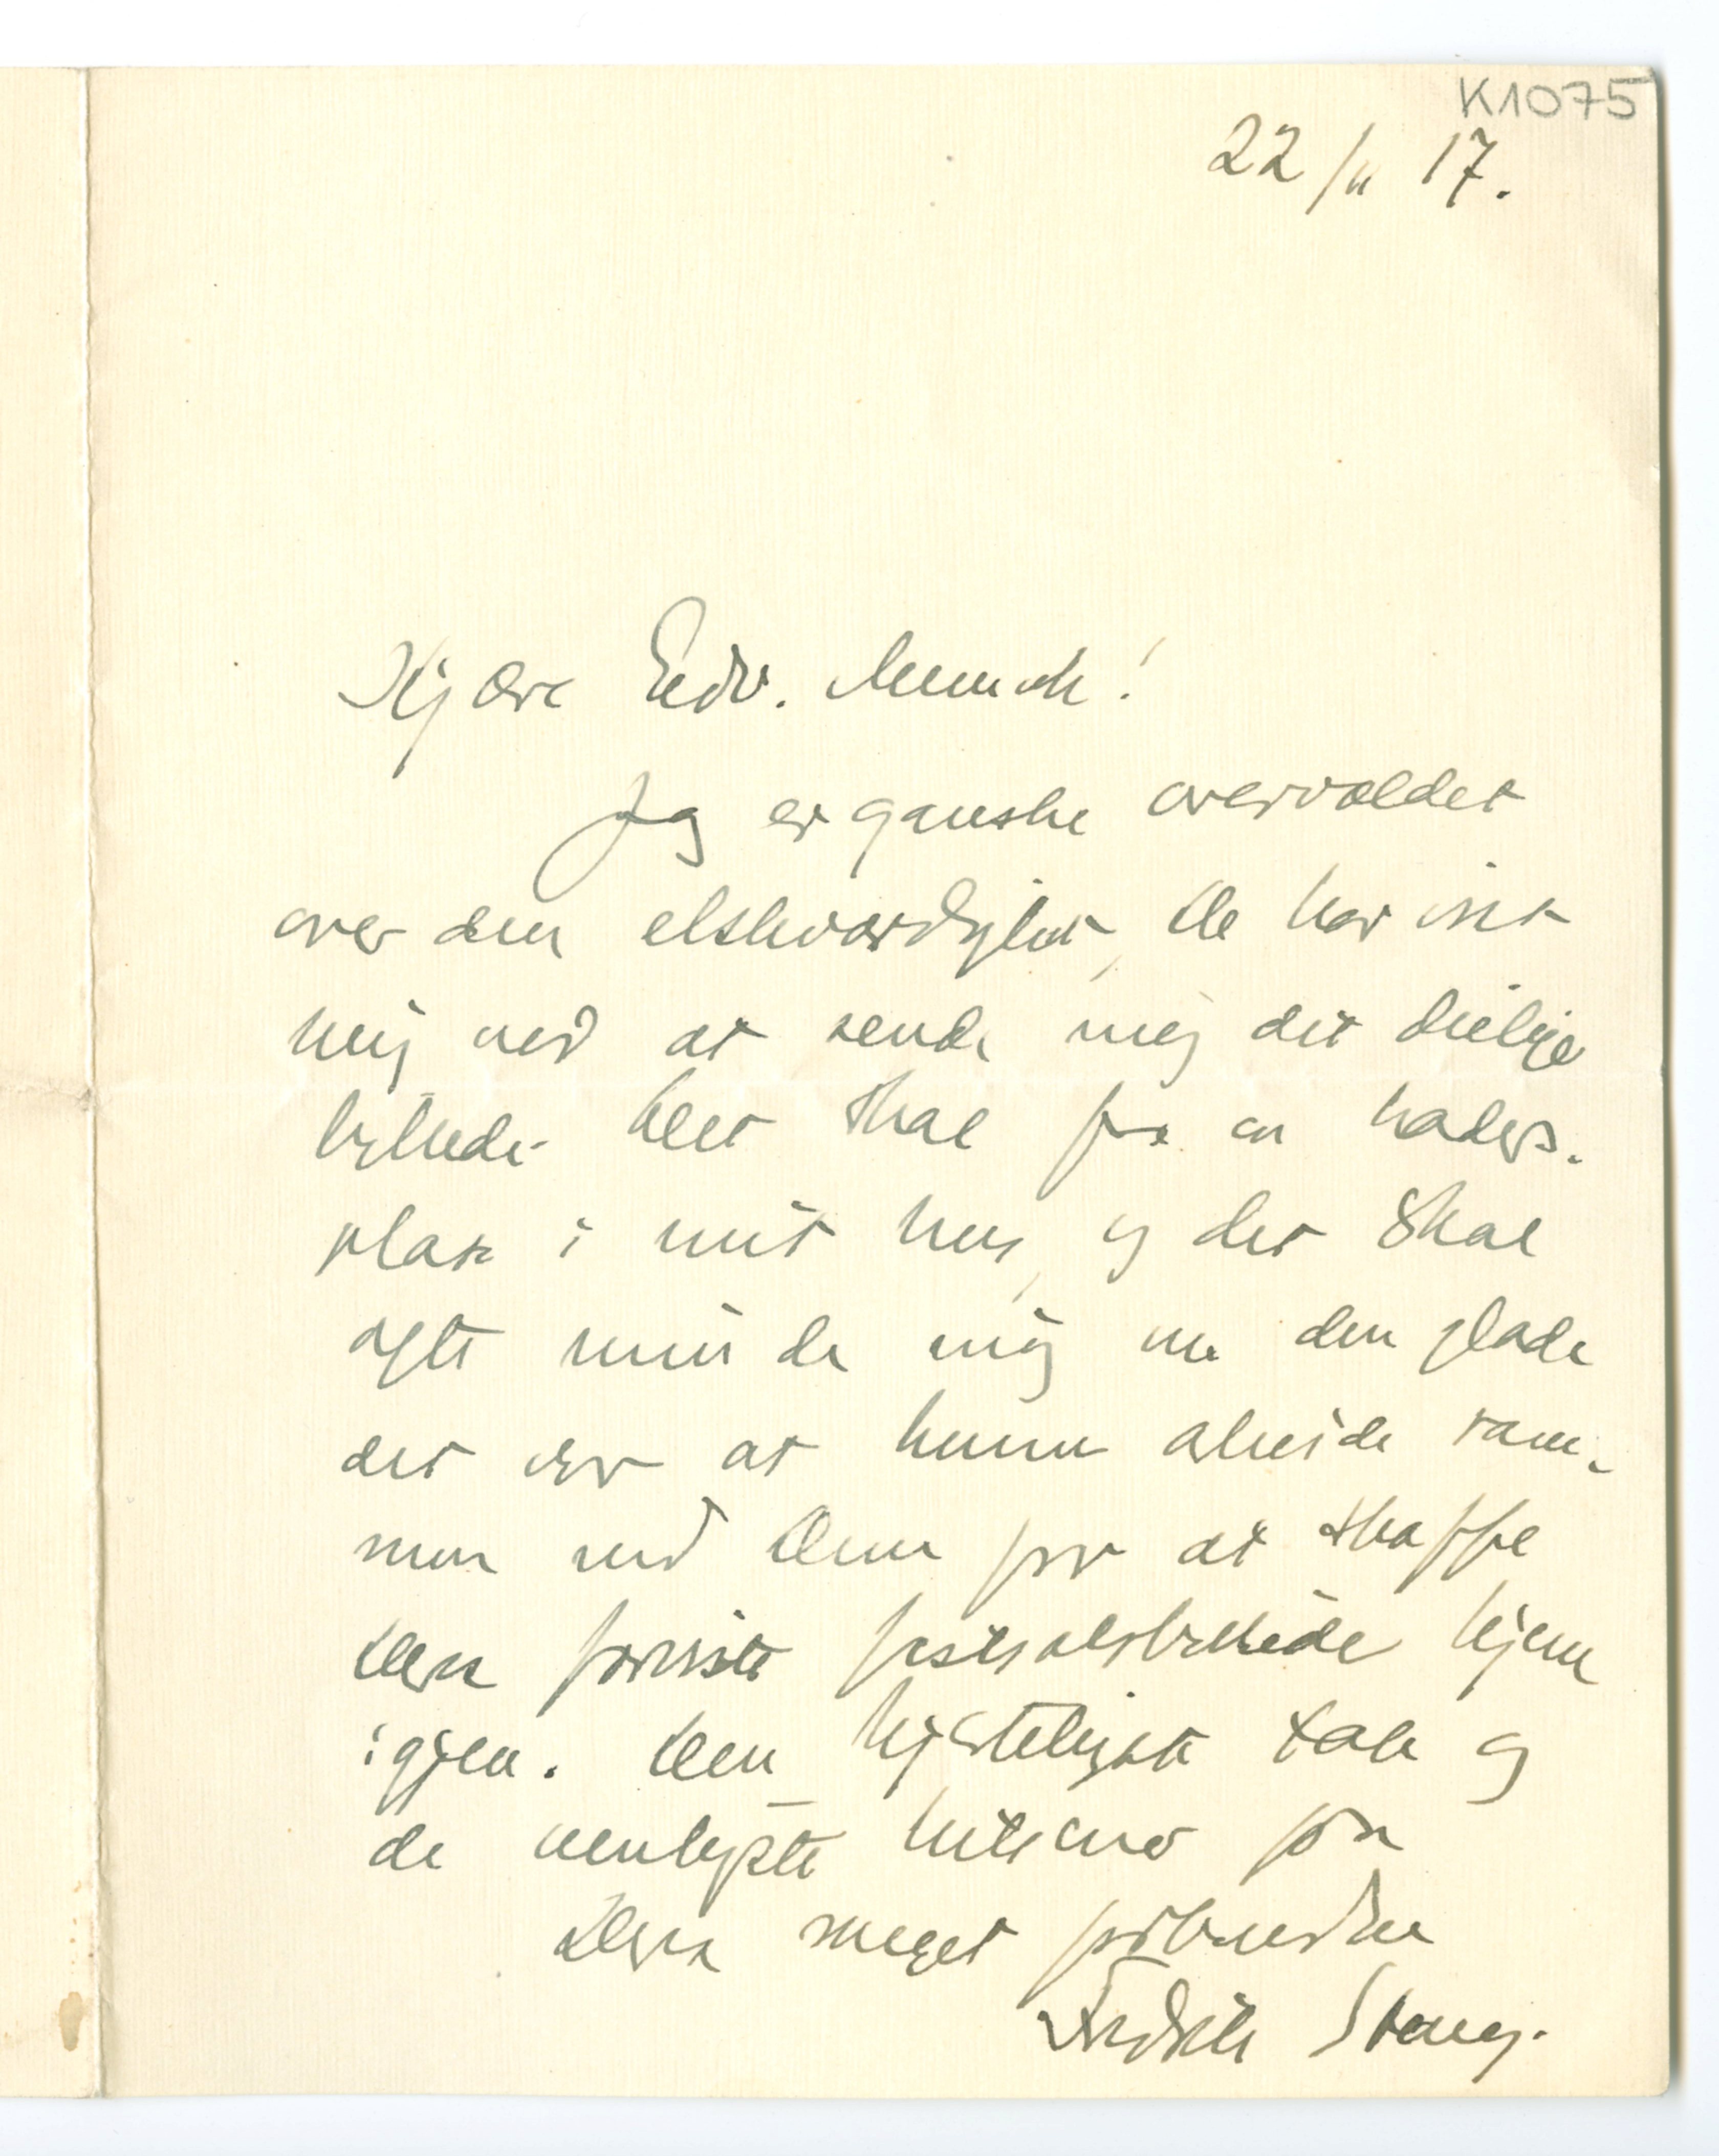 K1075
22/11 17.
Kjære Edv. Munch!
Jeg er ganske overvældet
over den elskværdighet, De har vist
mig ved at sende mig det deilige
billede. Det skal faa en hæders-
plass i mit hus, og det skal
ofte minde mig om den glæde
det var at kunne arbeide sam-
men med Dem for at skaffe
Dere festsalsbillede hjem
igjen. Den hjerteligste tak og
de venligste hilsener fra
Deres meget forbundne
Fredrik Stang.